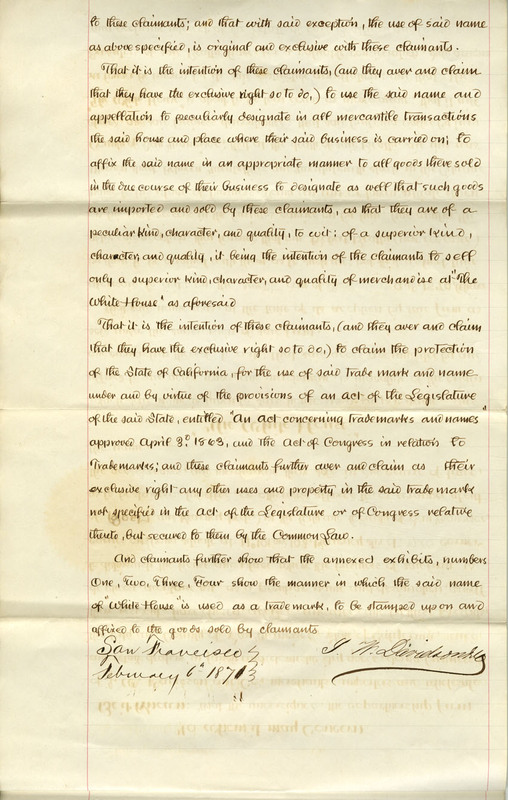 to these claimants; and that with said exception, the use of said name
as above specified, is original and exclusive with these claimants.
That it is the intention of these claimants, (and they aver and claim
that they have the exclusive right so to do,) to use the said name and
appellation to peculiarly designate in all mercantile transactions
the said house and place where their said business is carried on; to
affix the said name in an appropriate manner to all goods there sold
in the due course of their business to designate as well that such goods
are imported and sold by these claimants, as that they are of a
peculiar kind, character, and quality, to wit: of a superior kind,
character, and quality, it being the intention of the claimants to sell
only a superior kind, character, and quality of merchandise at "The
White House" as aforesaid
That it is the intention of these claimants, (and they aver and claim
that they have the exclusive right so to do,) to claim the protection
of the State of California, for the use of said trade mark and name
under and by virtue of the provisions of an act of the Legislature
of the said State, entitled "An Act concerning trademarks and names"
approved April 3d 1863, and the Act of Congress in relation to
Trademarks; and these claimants further aver and claim as their
exclusive right any other uses and property in the said trade mark
not specified in the Act of the Legislature or of Congress relative
thereto, but secured to them by the Common Law.
And claimants further show that the annexed exhibits, numbers
One, Two, Three, Four show the manner in which the said name
of "White House" is used as a trademark, to be stamped upon and
affixed to the goods sold by claimants
San Francisco
J. W. Davidson & Co
February 6th 1871